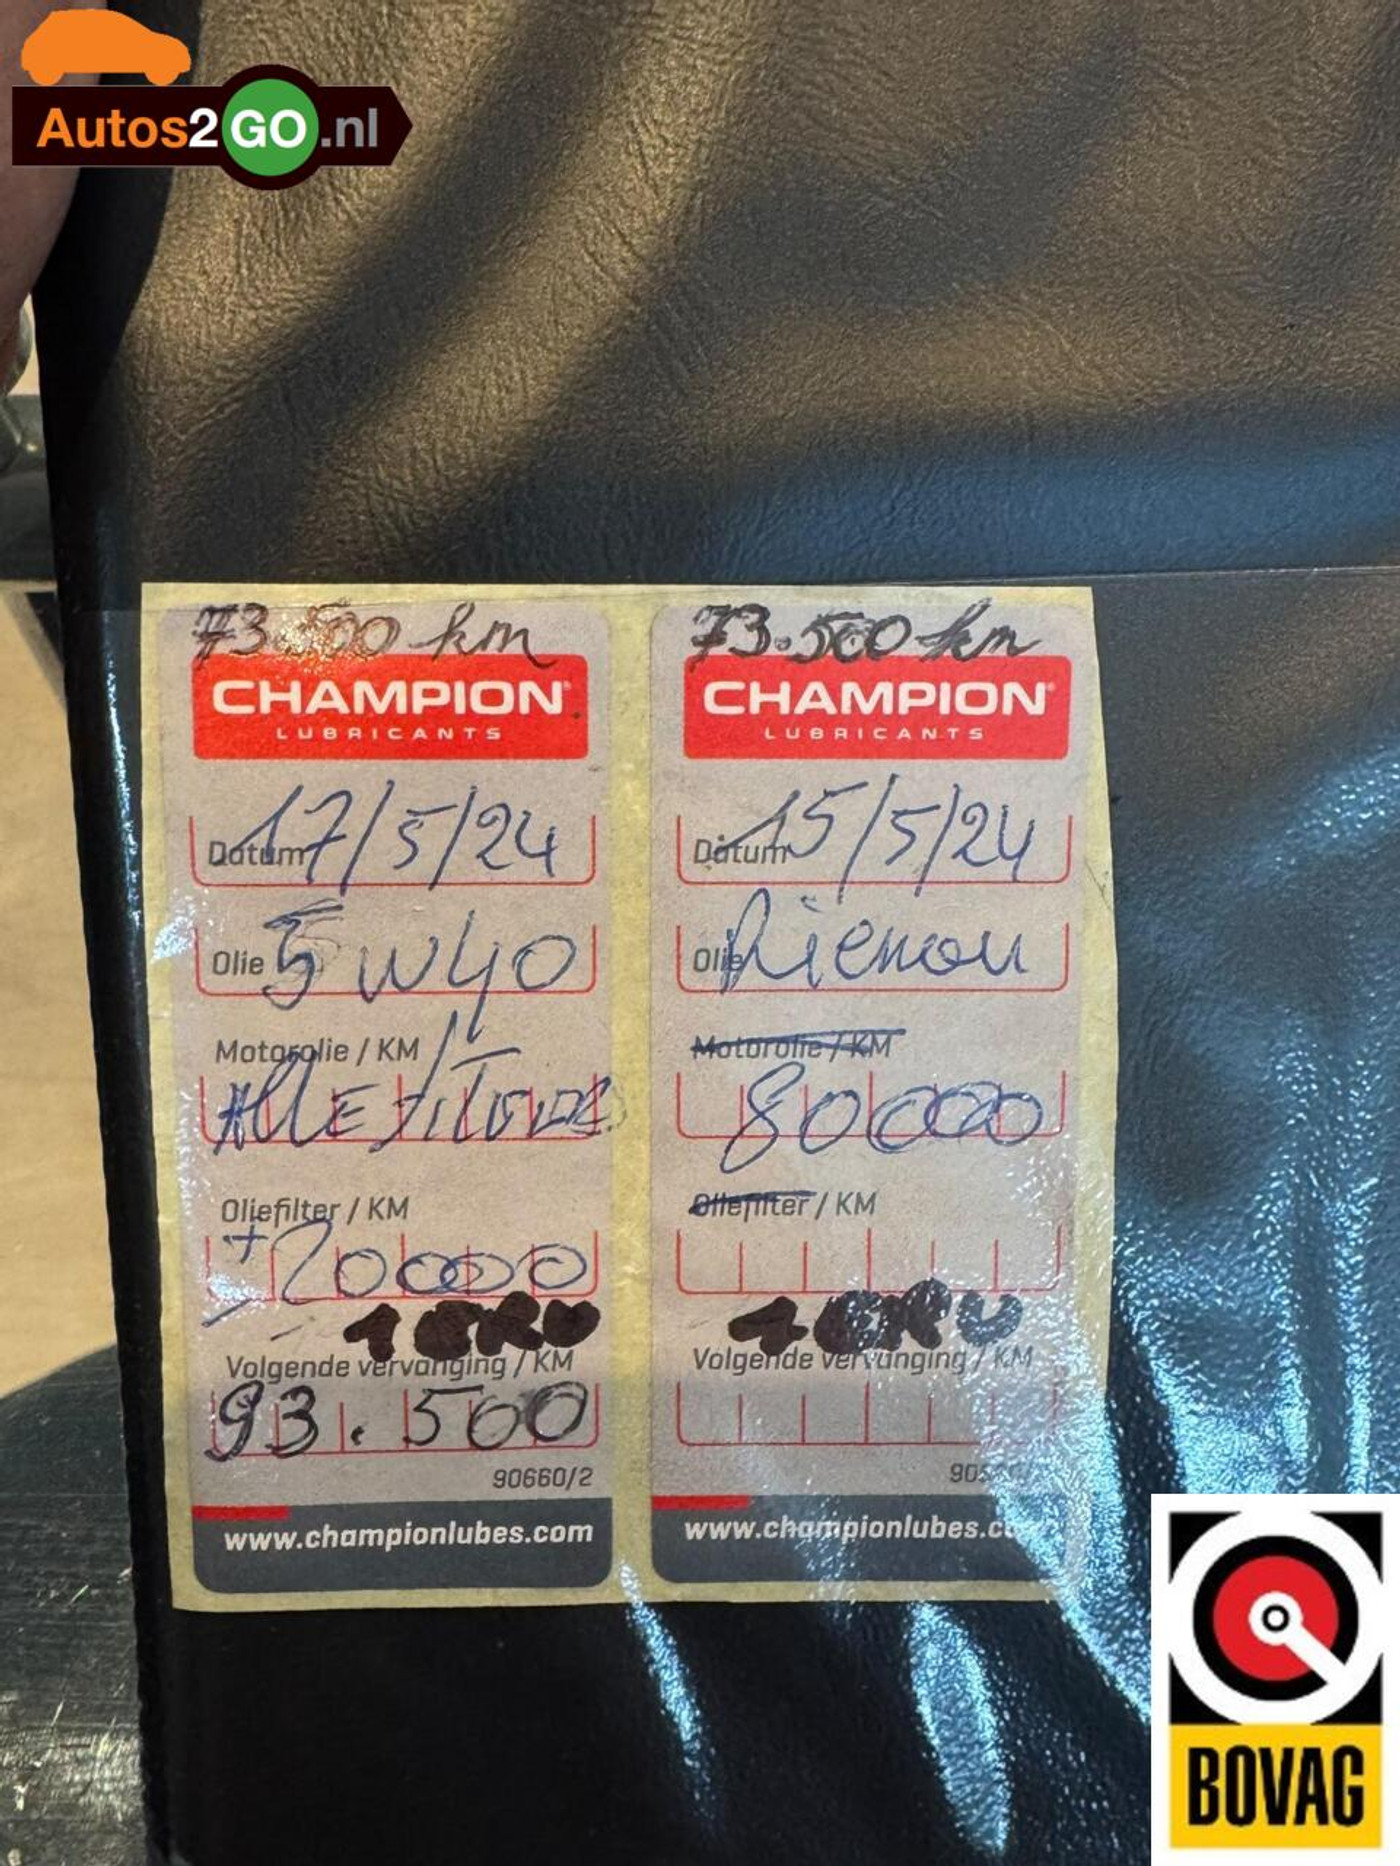 Autos2GO.nl
73.500 km
CHAMPION
LUBRICANTS
Datum 17/5/24
Olie 5W40
Motorolie / KM
Alle Filters
Oliefilter / KM
+
20000
Volgende vervanging / KM
93.500
90660/2
www.championlubes.com
73.500 km
CHAMPION
LUBRICANTS
Datum 15/5/24
Olie Riemen
Motorolie / KM
80000
Oliefilter / KM
Volgende vervanging / KM
www.championlubes.co
BOVAG